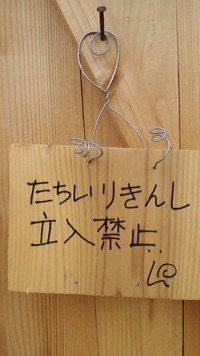 たちいりきんし
立入禁止